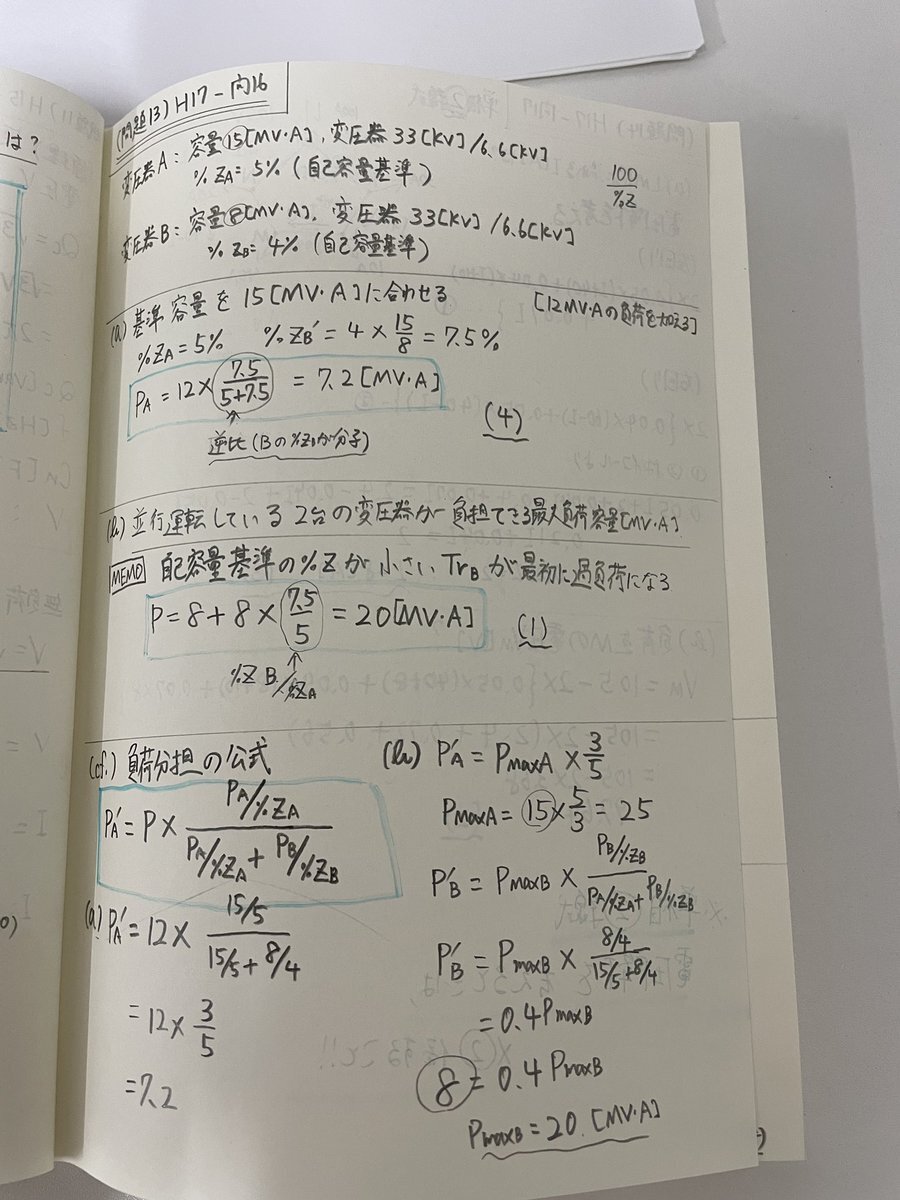 (問題13) H17-問16
変圧器A: 容量15[MV・A], 変圧器 33[kV]/6.6[kV]
%ZA=5% (自己容量基準)
100/%Z
変圧器B: 容量⑧[MV・A], 変圧器 33[kV]/6.6[kV]
%ZB=4% (自己容量基準)
(a) 基準容量を15[MV・A]に合わせる
[12MV・Aの負荷を加える]
%ZA=5% %ZB'=4×15/8=7.5%
PA=12×7.5/(5+7.5)=7.2[MV・A]
(4)
逆比(Bの%Zが分子)
(b) 並行運転している2台の変圧器が負担できる最大負荷容量[MV・A]
MEMO 自己容量基準の%Zが小さいTrBが最初に過負荷になる
P=8+8×7.5/5=20[MV・A]
(1)
%ZB/%ZA
(cf.) 負荷分担の公式
PA'=P×(PA/%ZA)/(PA/%ZA+PB/%ZB)
(a) PA'=12×(15/5)/(15/5+8/4)
=12×3/5
=7.2
(b) P'A=PmaxA×3/5
PmaxA=⑮×5/3=25
P'B=PmaxB×(PB/%ZB)/(PA/%ZA+PB/%ZB)
P'B=PmaxB×(8/4)/(15/5+8/4)
=0.4PmaxB
⑧=0.4PmaxB
PmaxB=20.[MV・A]
は?